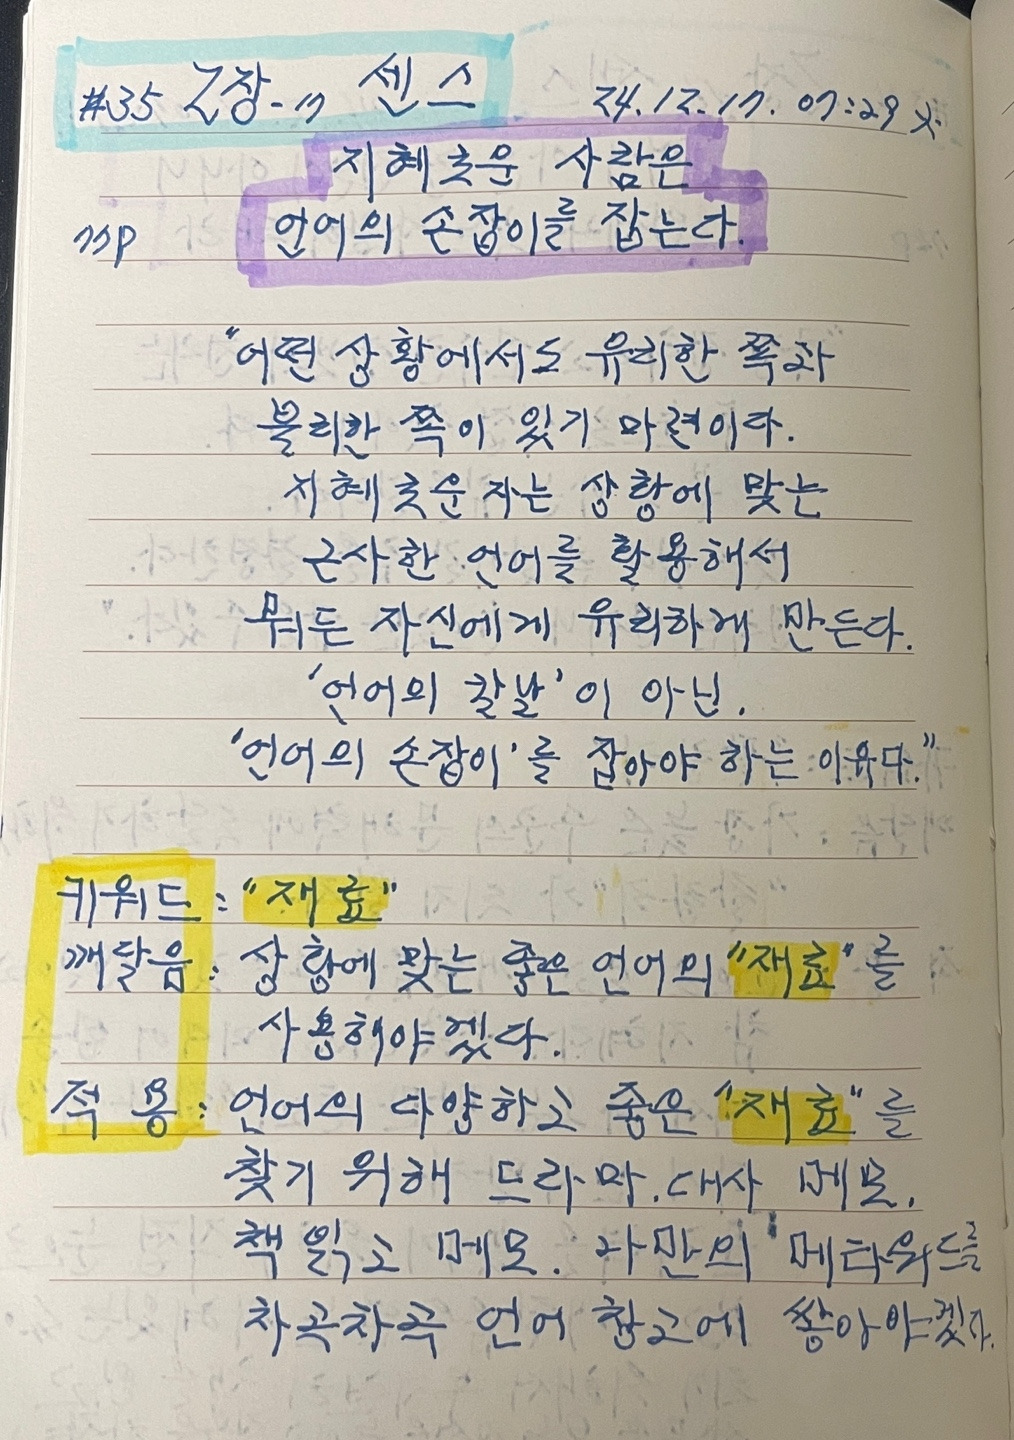 #35 2장-17 센스 24.12.17. 07:29 火.
지혜로운 사람은
77P 언어의 손잡이를 잡는다.
"어떤 상황에서도 유리한 쪽과
불리한 쪽이 있기 마련이다.
지혜로운 자는 상황에 맞는
근사한 언어를 활용해서
뭐든 자신에게 유리하게 만든다.
'언어의 칼날'이 아닌.
'언어의 손잡이'를 잡아야 하는 이유다."
키워드 : "재료"
깨달음 : 상황에 맞는 좋은 언어의 "재료"를
사용해야겠다.
적용 : 언어의 다양하고 좋은 "재료"를
찾기 위해 드라마.대사 메모.
책 읽고 메모. 나만의 '메타워드를
차곡차곡 언어 창고에 쌓아야겠다.